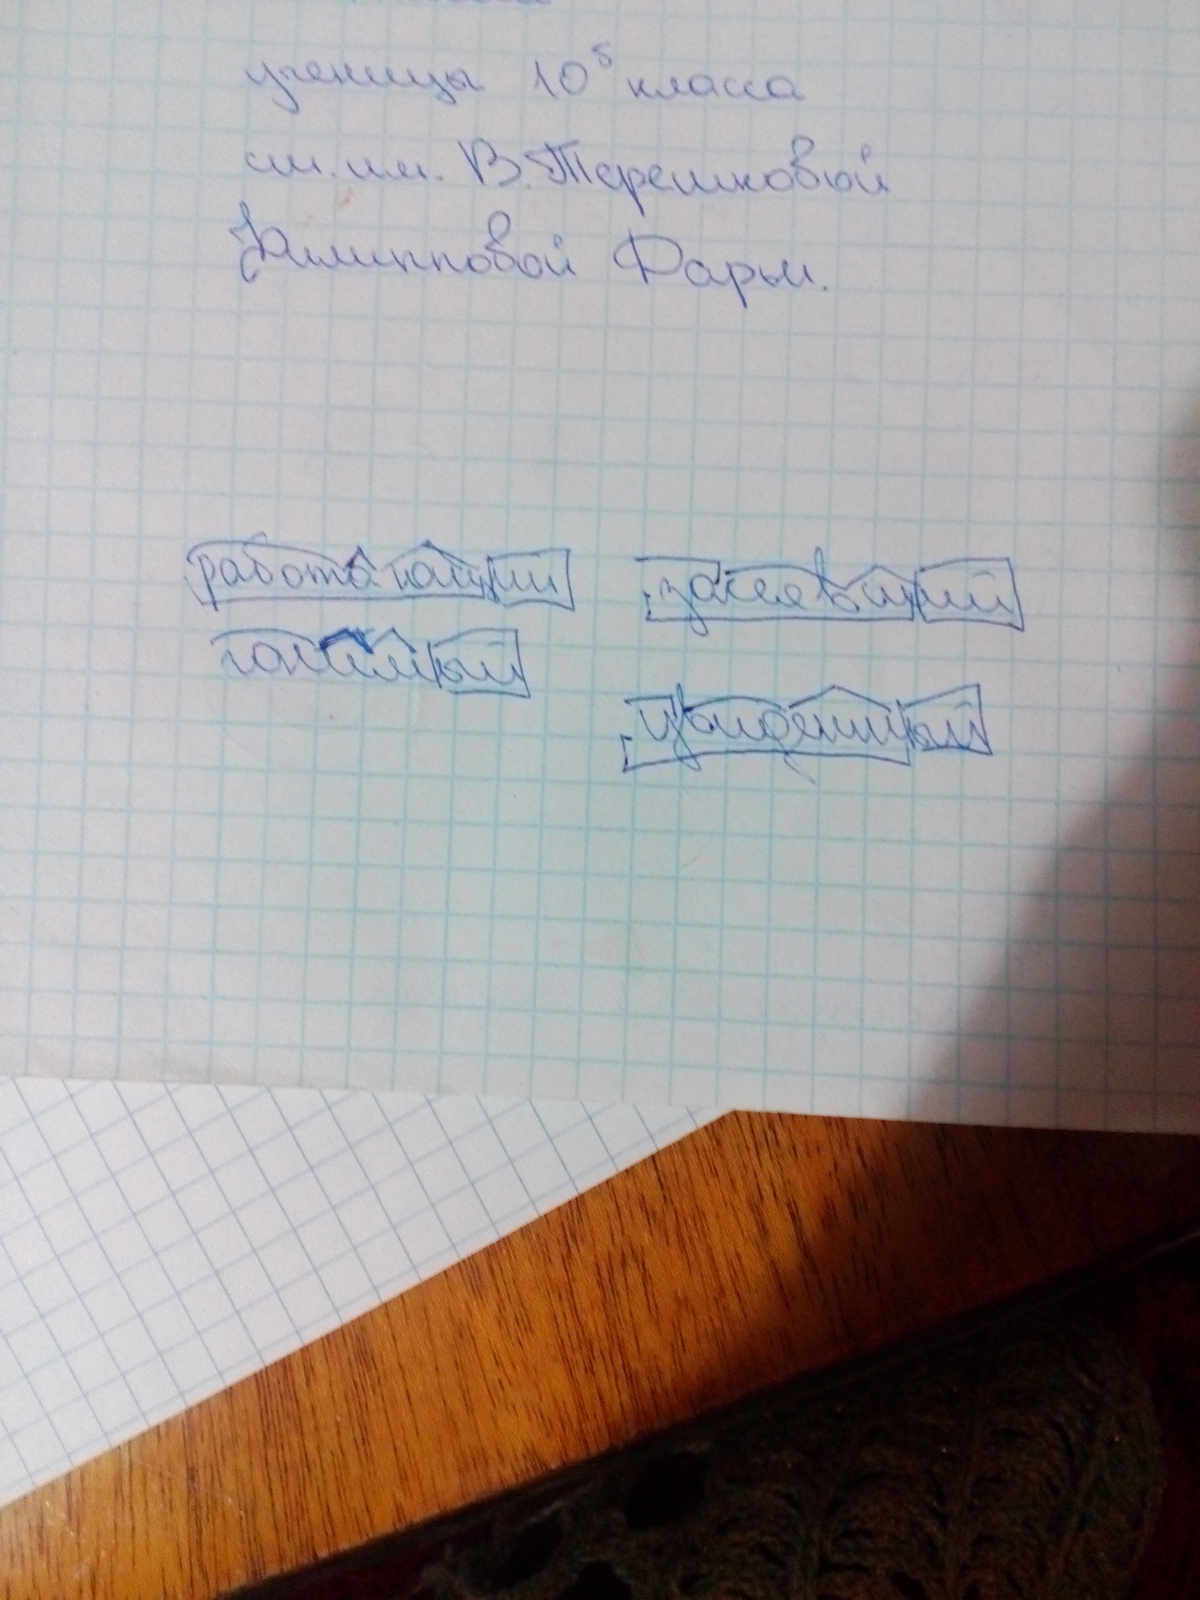 ученицы 10б класса
шк.им. В.Терешковой
Филипповой Дарьи.
работающий
засеявший
гонимый
увиденный